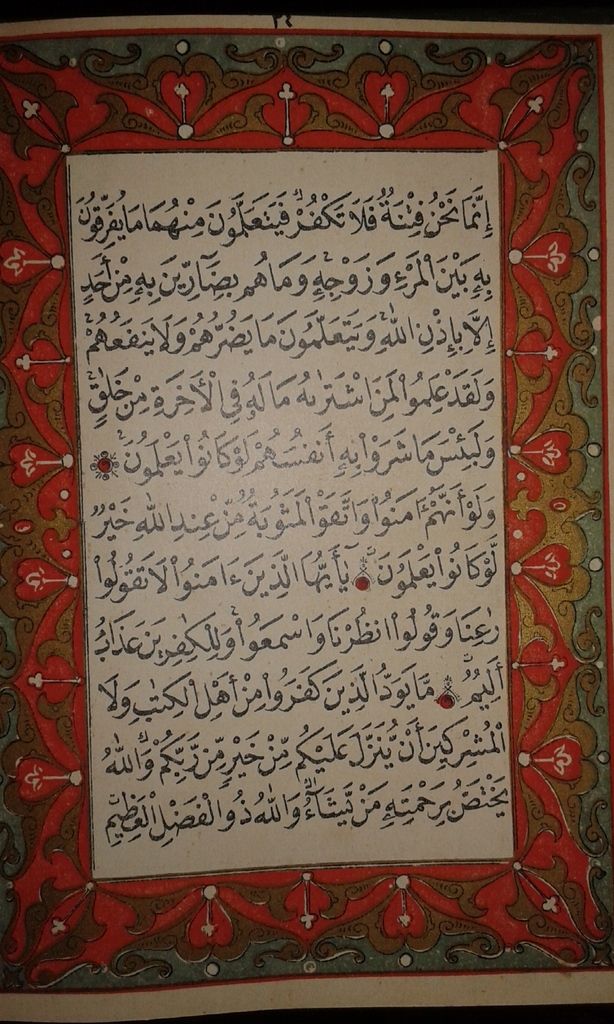 ٢٤
إِنَّمَا نَحْنُ فِتْنَةٌ فَلَا تَكْفُرْ فَيَتَعَلَّمُونَ مِنْهُمَا مَا يُفَرِّقُونَ
بِهِ بَيْنَ الْمَرْءِ وَزَوْجِهِ وَمَا هُم بِضَارِّينَ بِهِ مِنْ أَحَدٍ
إِلَّا بِإِذْنِ اللَّهِ وَيَتَعَلَّمُونَ مَا يَضُرُّهُمْ وَلَا يَنفَعُهُمْ
وَلَقَدْ عَلِمُوا لَمَنِ اشْتَرَىٰهُ مَا لَهُ فِي الْأَخِرَةِ مِنْ خَلَٰقٍ
وَلَبِئْسَ مَا شَرَوْا بِهِ أَنفُسَهُمْ لَوْ كَانُوا يَعْلَمُونَ
وَلَوْ أَنَّهُمْ ءَامَنُوا وَاتَّقَوْا لَمَثُوبَةٌ مِّنْ عِندِ اللَّهِ خَيْرٌ
لَّوْ كَانُوا يَعْلَمُونَ يَٰأَيُّهَا الَّذِينَ ءَامَنُوا لَا تَقُولُوا
رَٰعِنَا وَقُولُوا انظُرْنَا وَاسْمَعُوا وَلِلْكَٰفِرِينَ عَذَابٌ
أَلِيمٌ مَّا يَوَدُّ الَّذِينَ كَفَرُوا مِنْ أَهْلِ الْكِتَٰبِ وَلَا
الْمُشْرِكِينَ أَن يُنَزَّلَ عَلَيْكُم مِّنْ خَيْرٍ مِّن رَّبِّكُمْ وَاللَّهُ
يَخْتَصُّ بِرَحْمَتِهِ مَن يَشَاءُ وَاللَّهُ ذُو الْفَضْلِ الْعَظِيمِ